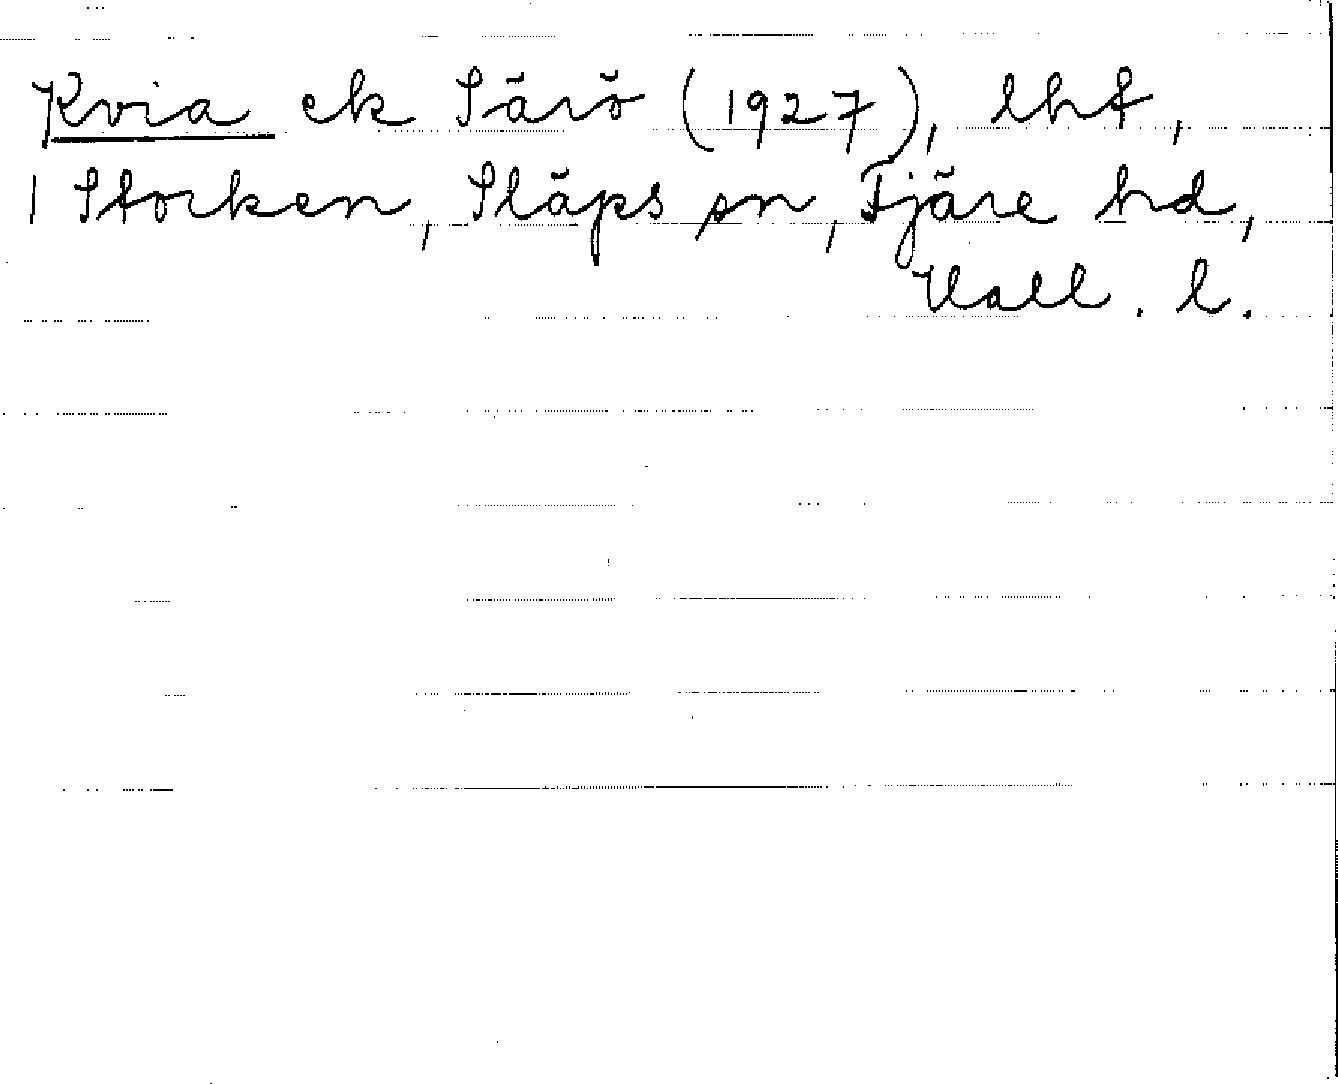 Kvia ek Särö (1927), lht,
1 Storken, Släps sn, Fjäre hd,
Hall. l.